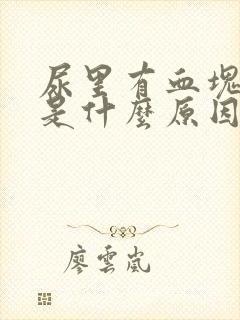 尿里有血塊
是什麼原因
廖雲嵐